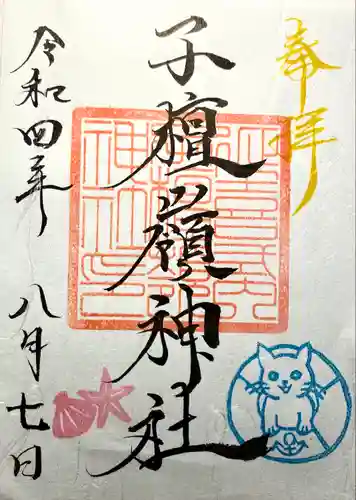 奉拝
子檀嶺神社
令和四年 八月七日